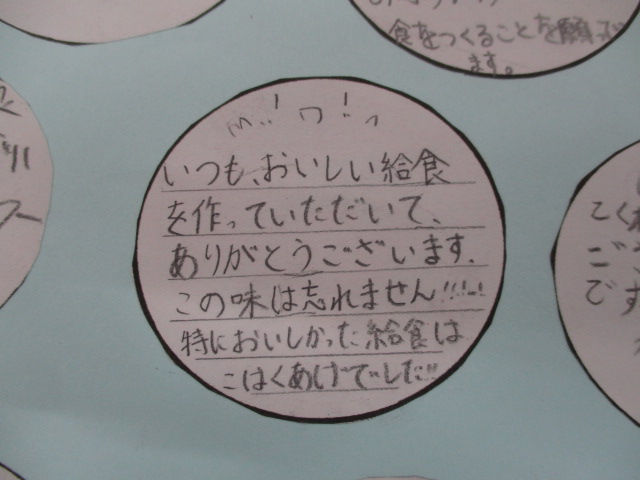 食をつくることを願って
ます。
いつも、おいしい給食
を作っていただいて、
ありがとうございます.
この味は忘れません!!!!!
特においしかった給食は
こはくあげでした!!
こくれ
ご
です